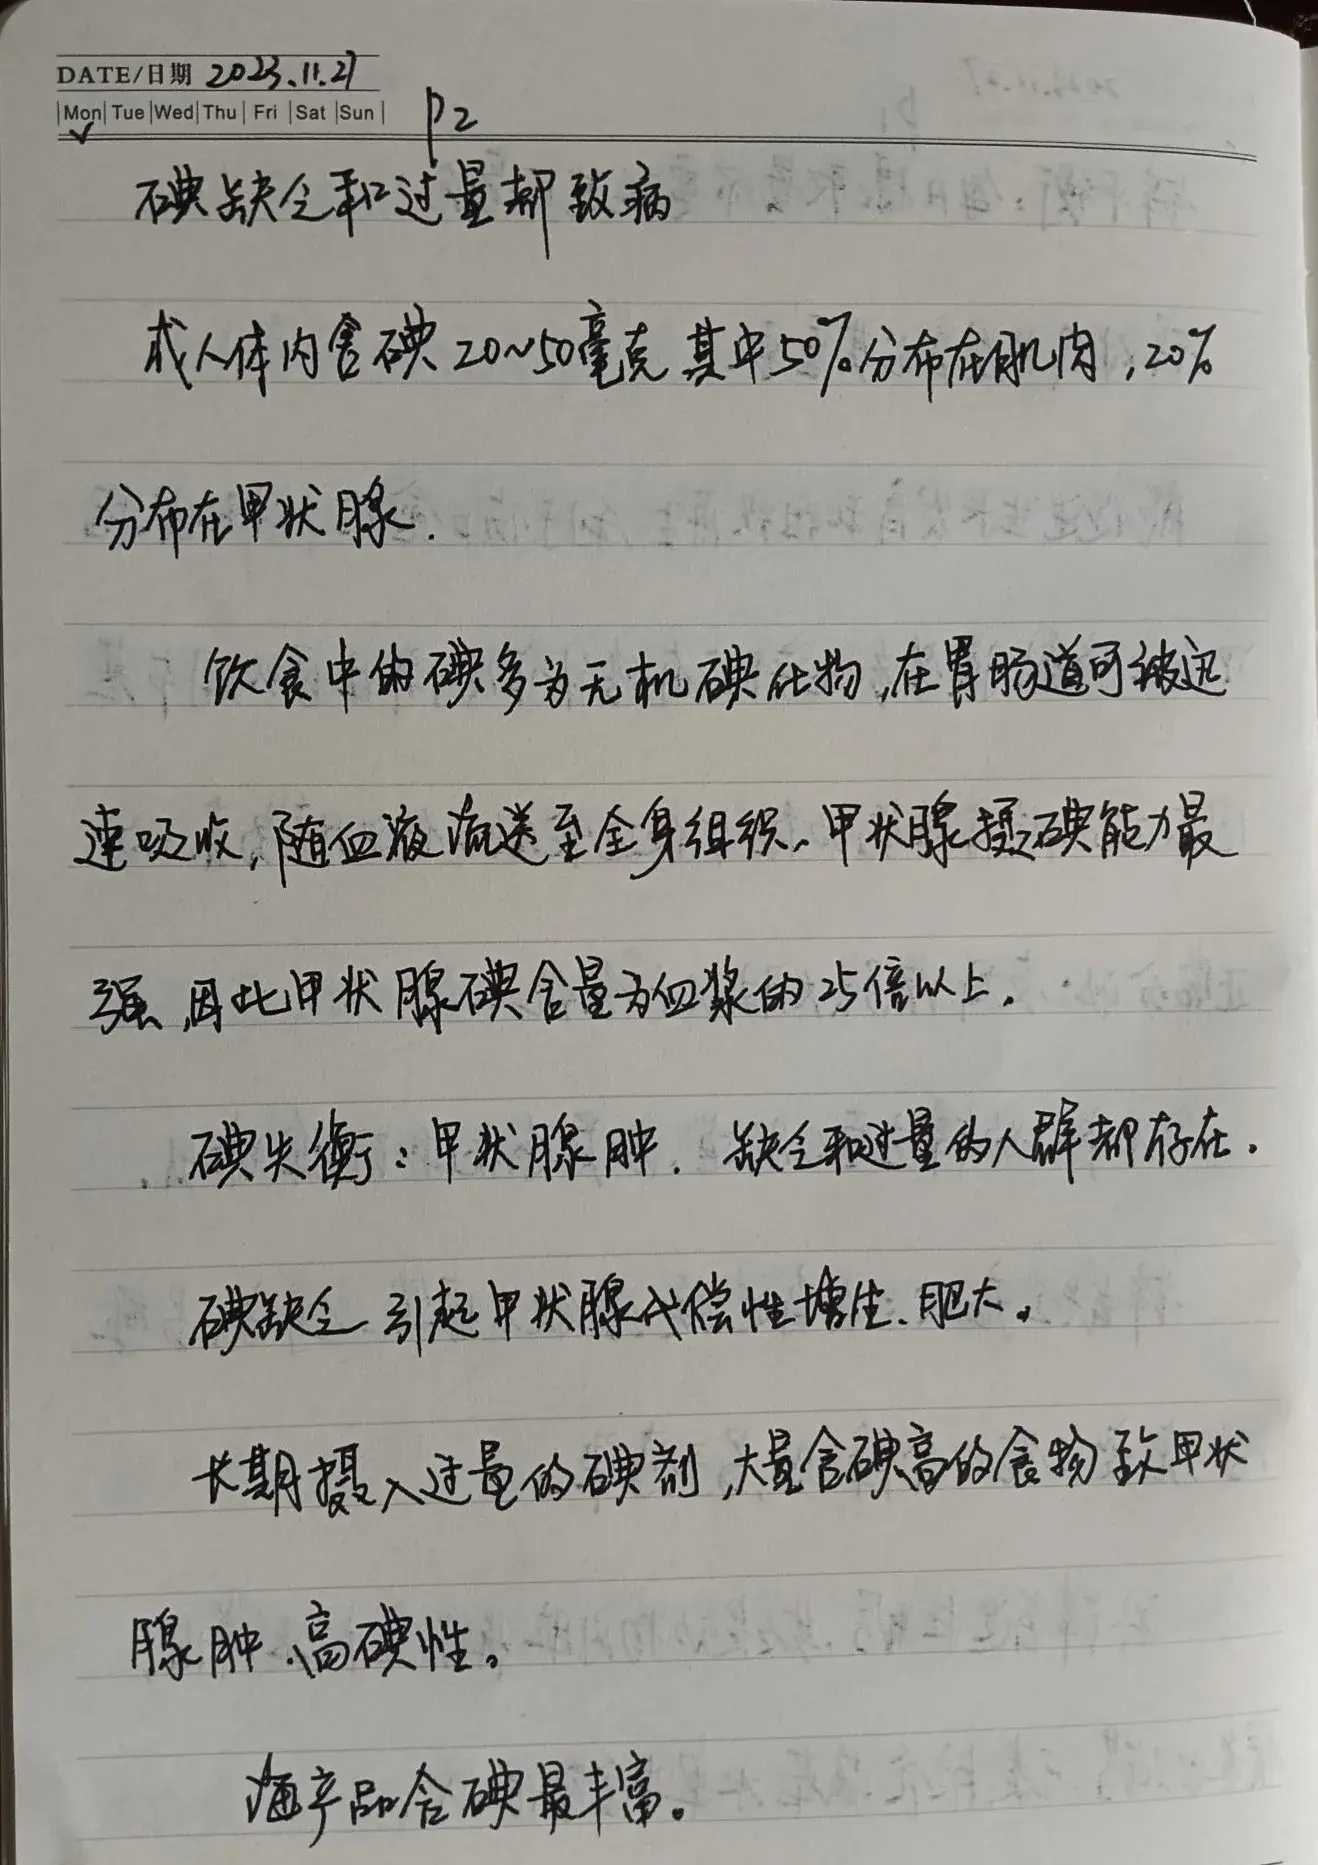 DATE/日期 2023.11.27
Mon Tue Wed Thu Fri Sat Sun
P2
碘缺乏和过量都致病
成人体内含碘20~50毫克其中50%分布在肌肉,20%
分布在甲状腺.
饮食中的碘多为无机碘化物,在胃肠道可被迅
速吸收,随血液流送至全身组织、甲状腺摄碘能力最
强,因此甲状腺碘含量为血浆的25倍以上.
碘失衡:甲状腺肿.缺乏和过量的人群都存在.
碘缺乏引起甲状腺代偿性增生、肥大。
长期摄入过量的碘剂,大量含碘高的食物致甲状
腺肿、高碘性。
海产品含碘最丰富。